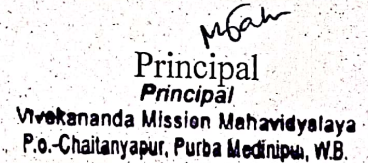 Principal
Principal
Vivekananda Mission Mahavidyalaya
P.o.-Chaitanyapur, Purba Medinipur, W.B.